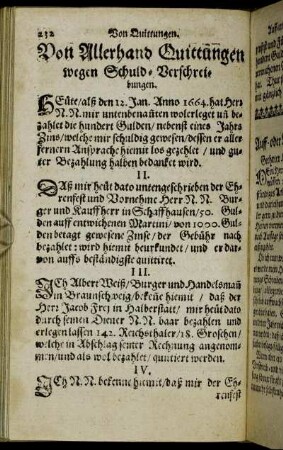 232 Von Quittungen.
Von Allerhand Quittungen
wegen Schuld-Verschrei-
bungen.
HEüte/alß den 12. Jan. Anno 1664. hat Herr
N. N. mir untenbenañten wolerleget uñ be-
zahlet die hundert Gulden/nebenst eines Jahrs
Zins/welche mir schuldig gewesen/dessen er aller
fernern Ansprache hiemit los gezehlet / und gu-
ter Bezahlung halben bedanket wird.
II.
DAß mir heüt dato untengeschrieben der Eh-
renfest und Vornehme Herr N. N. Bur-
ger und Kauffherr in Schaffhausen/50. Gul-
den auff entwichenen Martini/von 1000. Gul-
den betagt gewesene Zinse/ der Gebühr nach
bezahlet: wird hiemit beurkundet/ und er dar-
von auffs beständigste quittiret.
III.
ICh Albert Weiß/Burger und Handelsmañ
in Braunschweig/bekeñe hiemit / daß der
Herr Jacob Frej in Halberstatt/ mir heüt dato
durch seinen Diener N. N. baar bezahlen und
erlegen lassen 142. Reichsthaler/18. Groschen/
welche in Abschlag seiner Rechnung angenom-
men/und als wol bezahlet/quittiert werden.
IV.
ICh N. N. bekenne hiemit/daß mir der Eh-
renfest